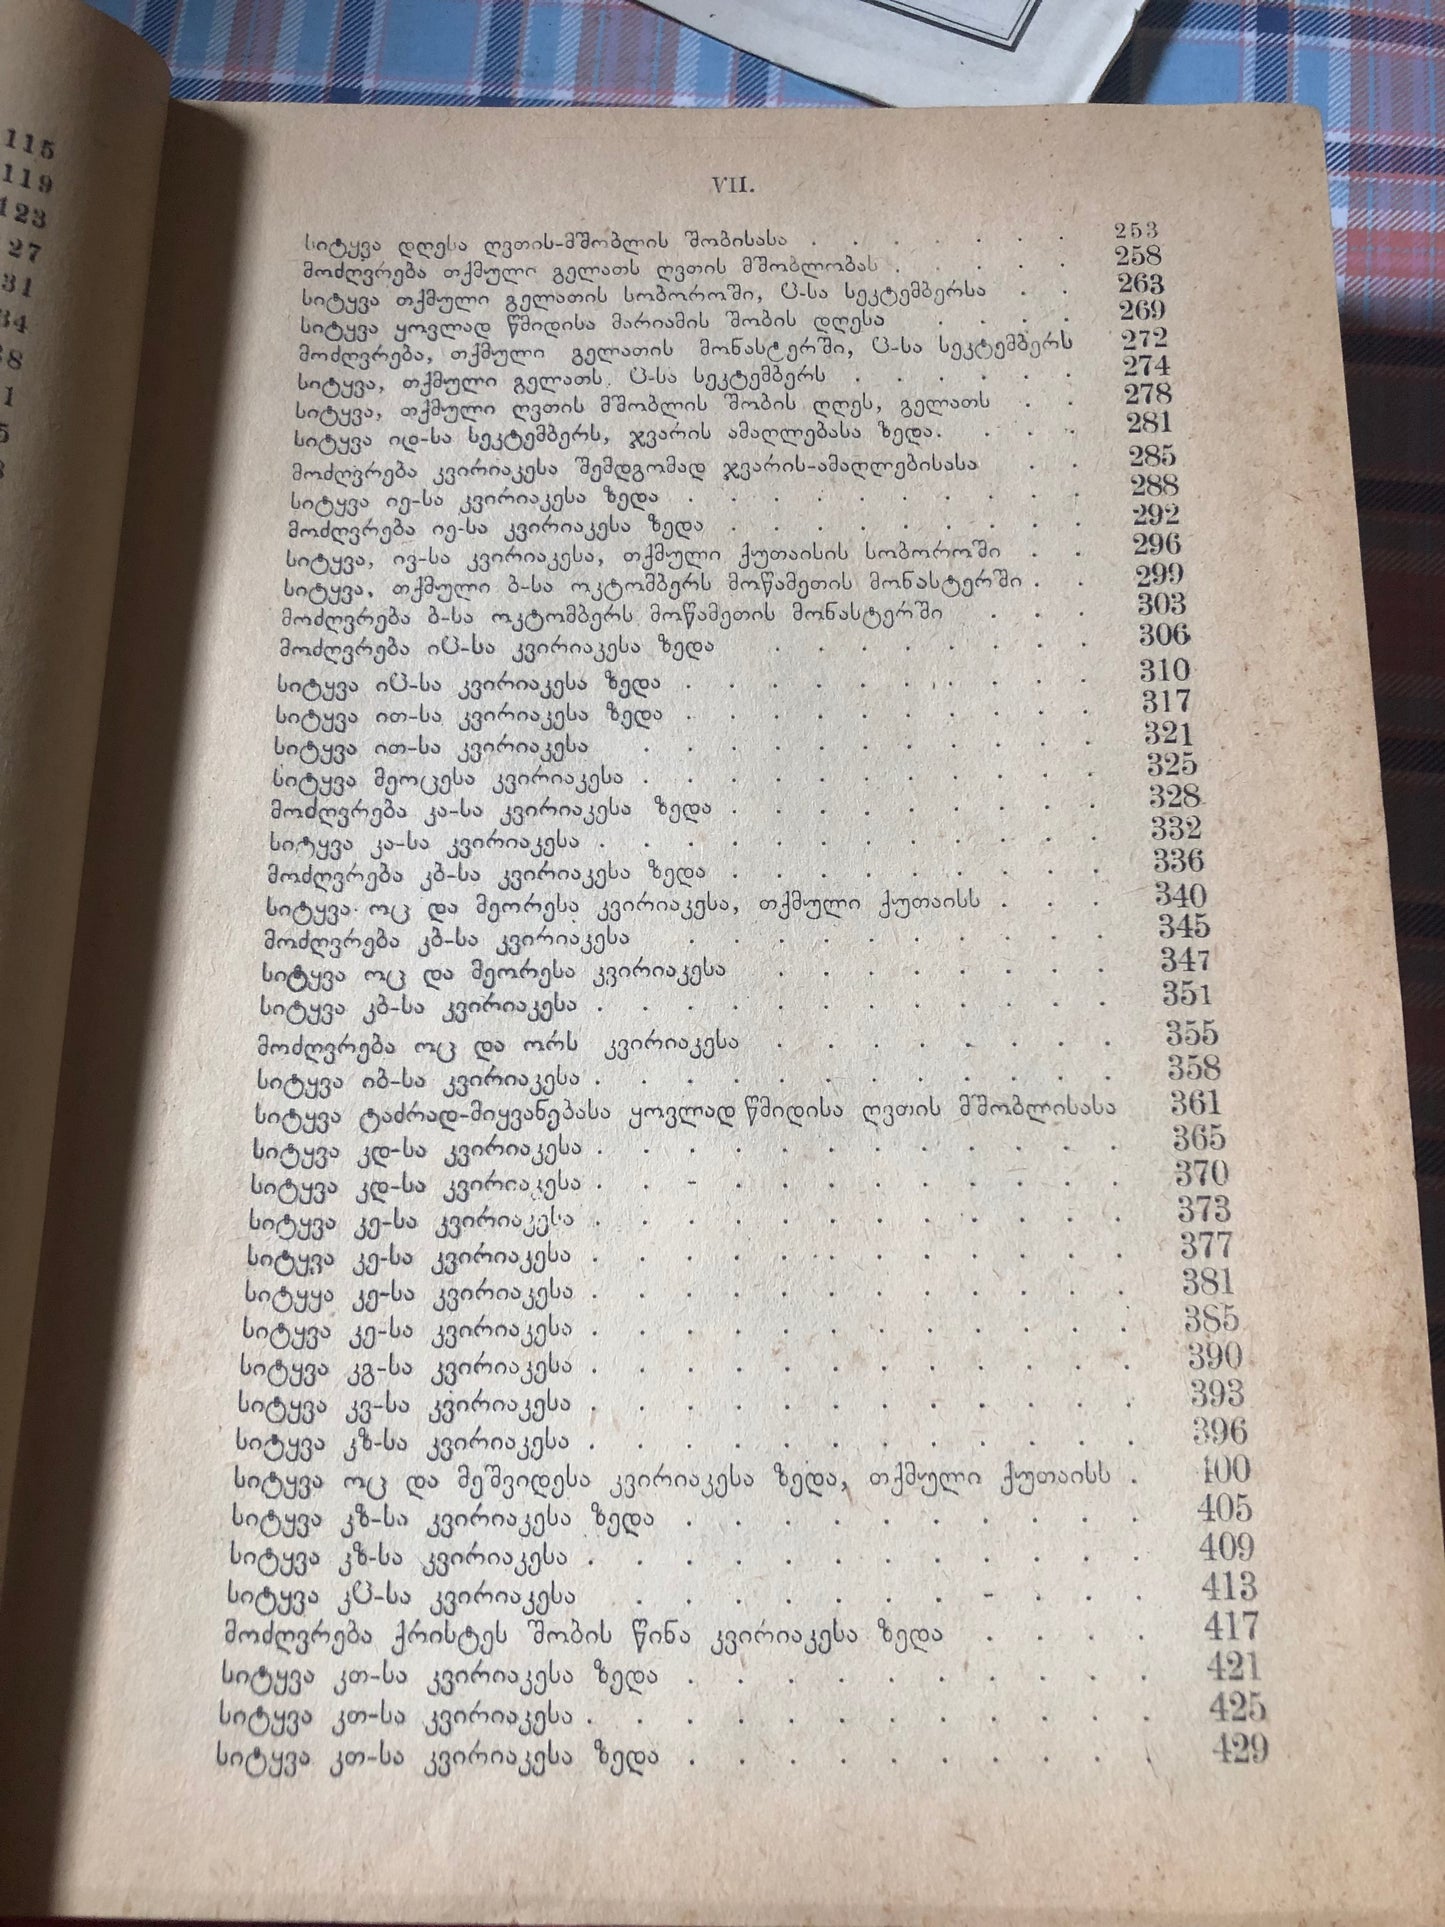 115
119
123
27
31
34
38
1
5
8
VII.
სიტყვა დღესა ღვთის-მშობლის შობისასა . . . . . . 253
მოძღვრება თქმული გელათს ღვთის მშობლობას . . . . . 258
სიტყვა თქმული გელათის სობოროში, ჱ-სა სეკტემბერსა . . 263
სიტყვა ყოვლად წმიდისა მარიამის შობის დღესა . . . . 269
მოძღვრება, თქმული გელათის მონასტერში, ჱ-სა სეკტემბერს 272
სიტყვა, თქმული გელათს. ჱ-სა სეკტემბერს . . . . . . 274
სიტყვა, თქმული ღვთის მშობლის შობის დღეს, გელათს . . 278
სიტყვა იდ-სა სეკტემბერს, ჯვარის ამაღლებასა ზედა. . . . 281
მოძღვრება კვირიაკესა შემდგომად ჯვარის-ამაღლებისასა . . 285
სიტყვა იე-სა კვირიაკესა ზედა . . . . . . . . . 288
მოძღვრება იე-სა კვირიაკესა ზედა . . . . . . . . 292
სიტყვა, ივ-სა კვირიაკესა, თქმული ქუთაისის სობოროში . . 296
სიტყვა, თქმული ბ-სა ოკტომბერს მოწამეთის მონასტერში . . 299
მოძღვრება ბ-სა ოკტომბერს მოწამეთის მონასტერში . . . 303
მოძღვრება იჱ-სა კვირიაკესა ზედა . . . . . . . 306
სიტყვა იჱ-სა კვირიაკესა ზედა . . . . . . . . . 310
სიტყვა ით-სა კვირიაკესა ზედა . . . . . . . . . 317
სიტყვა ით-სა კვირიაკესა . . . . . . . . . . 321
სიტყვა მეოცესა კვირიაკესა . . . . . . . . . . 325
მოძღვრება კა-სა კვირიაკესა ზედა . . . . . . . . 328
სიტყვა კა-სა კვირიაკესა . . . . . . . . . . . 332
მოძღვრება კბ-სა კვირიაკესა ზედა . . . . . . . . . 336
სიტყვა ოც და მეორესა კვირიაკესა, თქმული ქუთაისს . . . 340
მოძღვრება კბ-სა კვირიაკესა . . . . . . . . . 345
სიტყვა ოც და მეორესა კვირიაკესა . . . . . . . 347
სიტყვა კბ-სა კვირიაკესა . . . . . . . . . . . 351
მოძღვრება ოც და ორს კვირიაკესა . . . . . . . 355
სიტყვა იბ-სა კვირიაკესა . . . . . . . . . . . 358
სიტყვა ტაძრად-მიყვანებასა ყოვლად წმიდისა ღვთის მშობლისასა 361
სიტყვა კდ-სა კვირიაკესა . . . . . . . . . . . 365
სიტყვა კდ-სა კვირიაკესა . . - . . . . . . . . 370
სიტყვა კე-სა კვირიაკესა . . . . . . . . . . . 373
სიტყვა კე-სა კვირიაკესა . . . . . . . . . . . 377
სიტყყა კე-სა კვირიაკესა . . . . . . . . . . . 381
სიტყვა კე-სა კვირიაკესა . . . . . . . . . . . 385
სიტყვა კგ-სა კვირიაკესა . . . . . . . . . . . 390
სიტყვა კვ-სა კვირიაკესა . . . . . . . . . . . 393
სიტყვა კზ-სა კვირიაკესა . . . . . . . . . . . 396
სიტყვა ოც და მეშვიდესა კვირიაკესა ზედა, თქმული ქუთაისს . 400
სიტყვა კზ-სა კვირიაკესა ზედა . . . . . . . . . . 405
სიტყვა კზ-სა კვირიაკესა . . . . . . . . . . . 409
სიტყვა კჱ-სა კვირიაკესა . . . . . . . - . . . 413
მოძღვრება ქრისტეს შობის წინა კვირიაკესა ზედა . . . . 417
სიტყვა კთ-სა კვირიაკესა ზედა . . . . . . . . . . 421
სიტყვა კთ-სა კვირიაკესა . . . . . . . . . . . . 425
სიტყვა კთ-სა კვირიაკესა ზედა . . . . . . . . . . 429